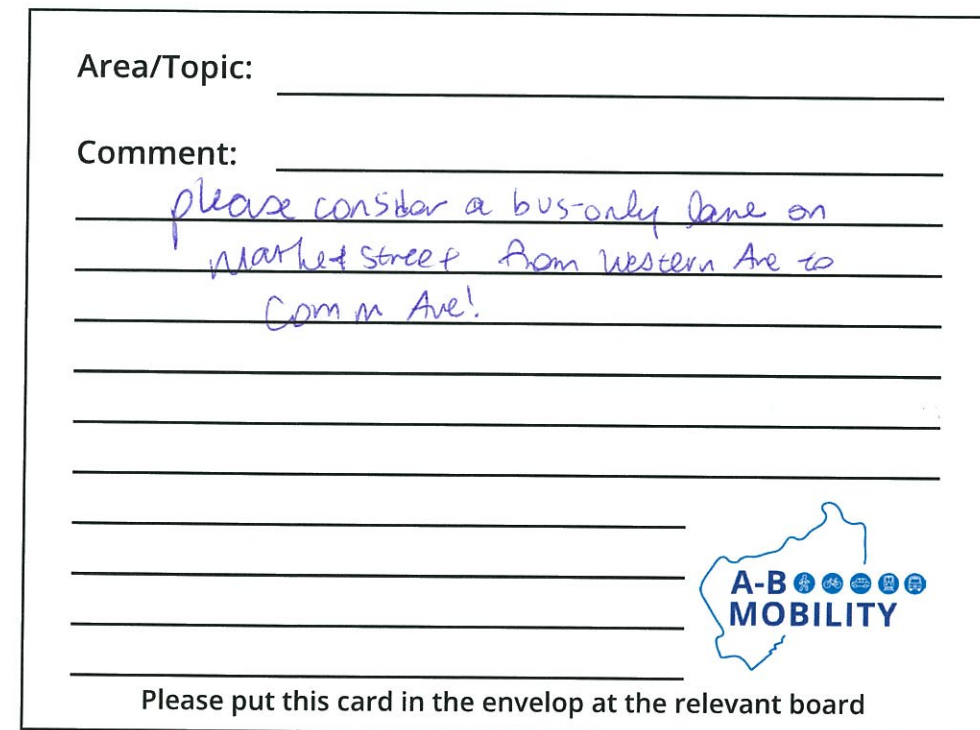 Area/Topic:
Comment:
please consider a bus-only lane on
Market Street from Western Ave to
Comm Ave!
A-B
MOBILITY
Please put this card in the envelop at the relevant board